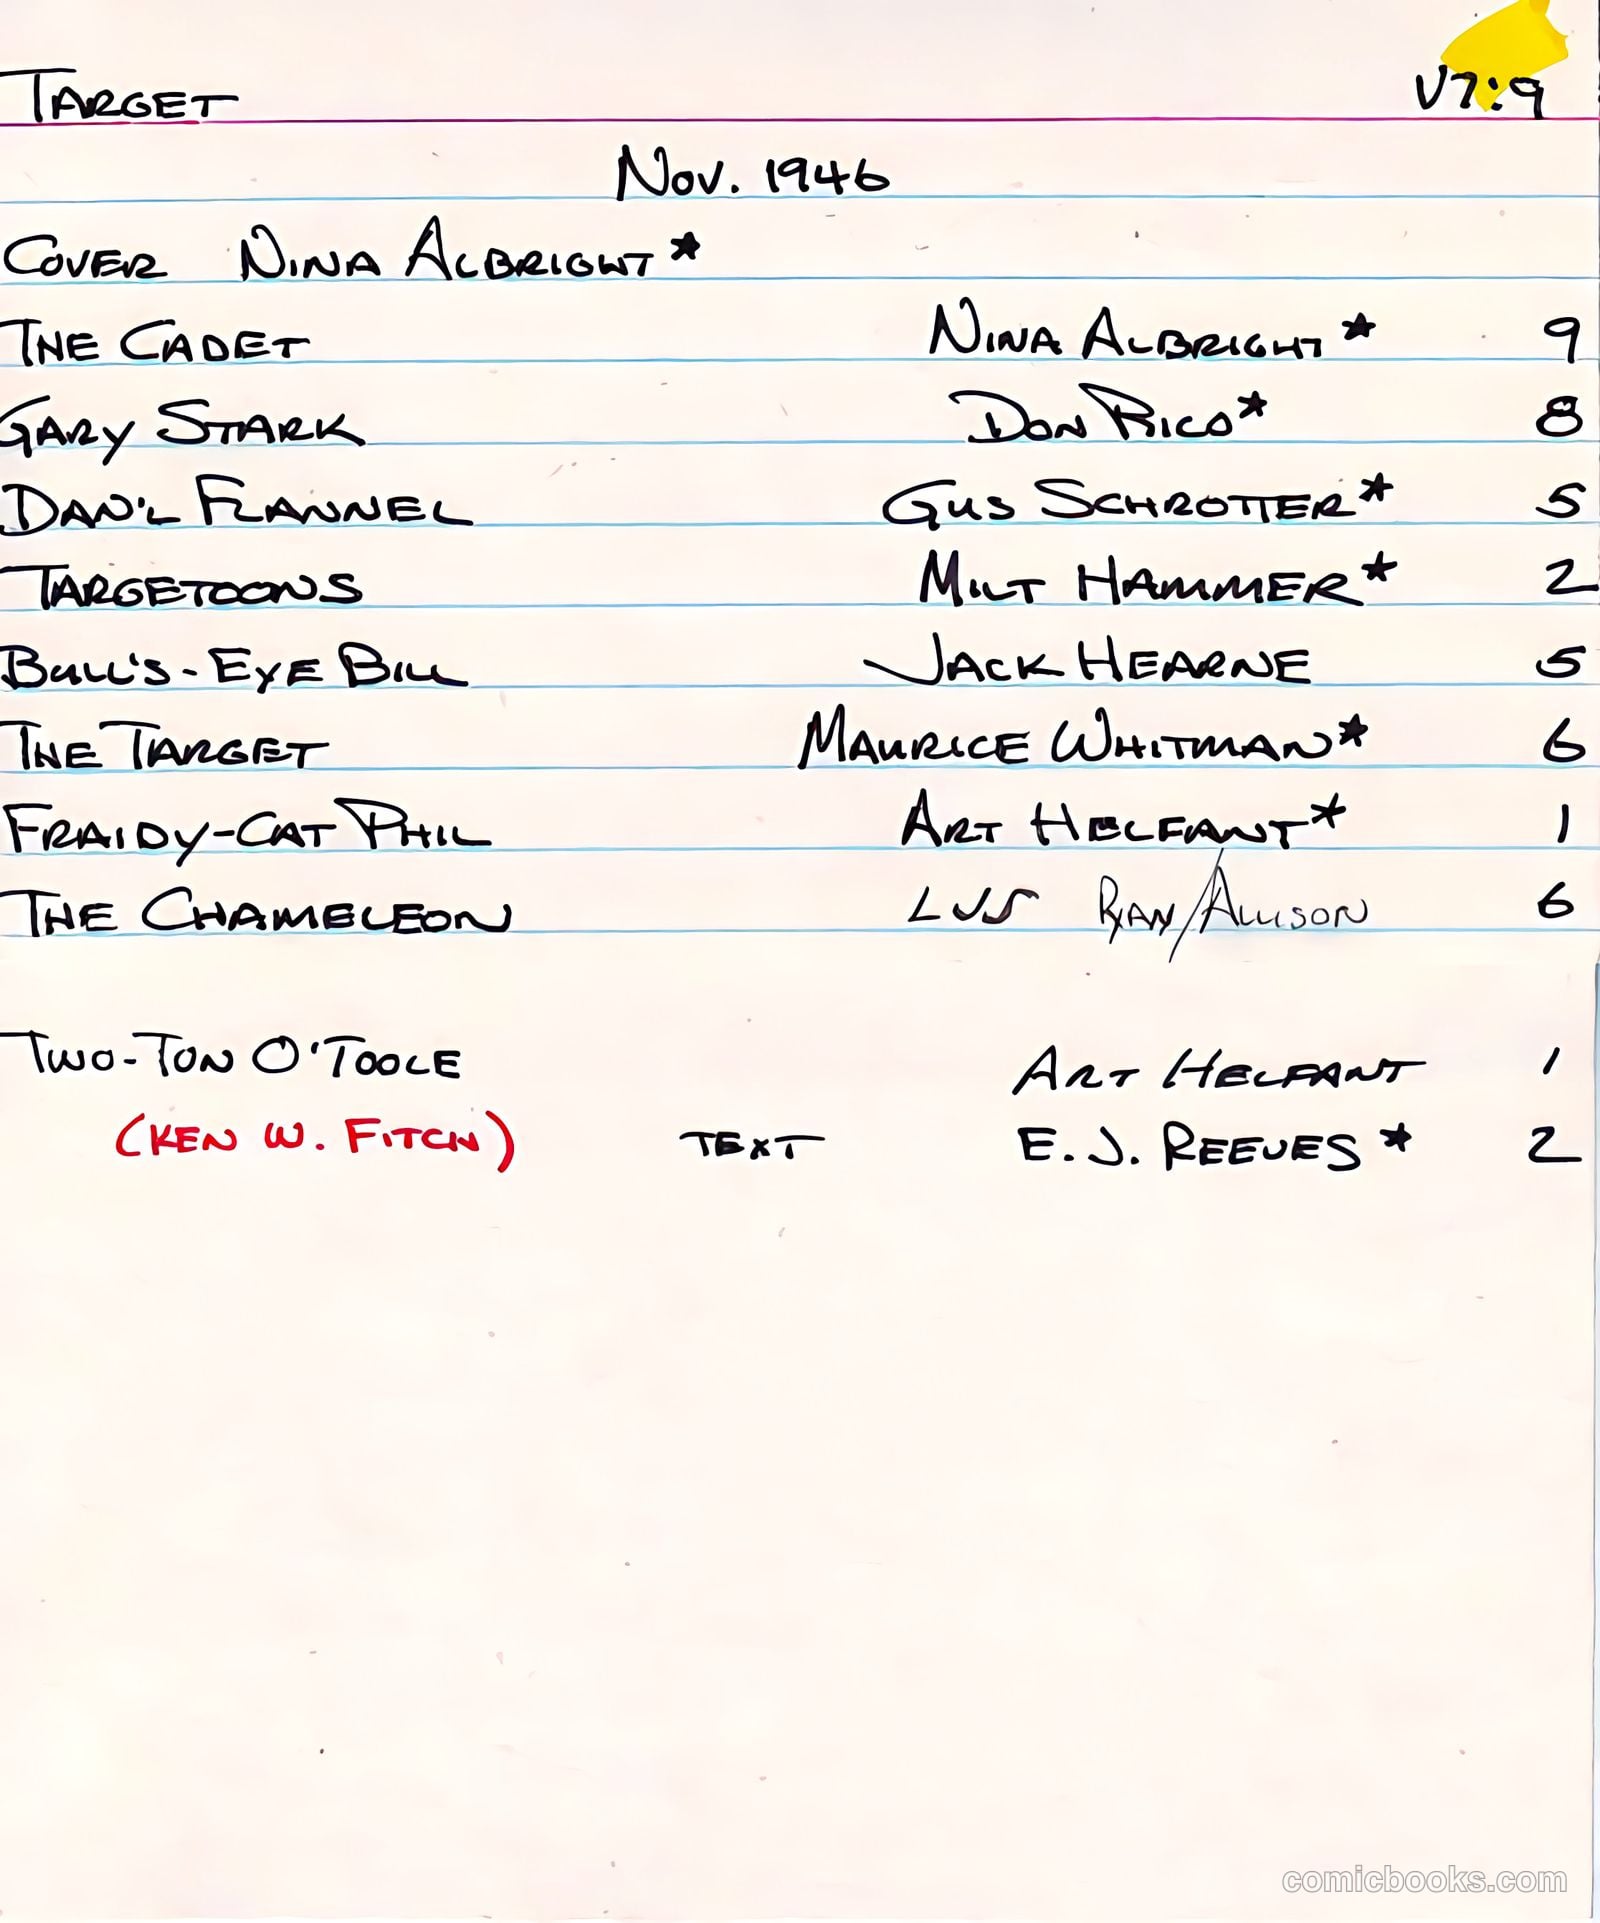 TARGET V7:9
NOV. 1946
COVER NINA ALBRIGHT*
THE CADET NINA ALBRIGHT* 9
GARY STARK DON RICO* 8
DAN'L FLANNEL GUS SCHROTTER* 5
TARGETOONS MILT HAMMER* 2
BULL'S-EYE BILL JACK HEARNE 5
THE TARGET MAURICE WHITMAN* 6
FRAIDY-CAT PHIL ART HELFANT* 1
THE CHAMELEON LVS RYAN/ALLISON 6
TWO-TON O'TOOLE ART HELFANT 1
(KEN W. FITCH) TEXT E. J. REEVES* 2
comicbooks.com